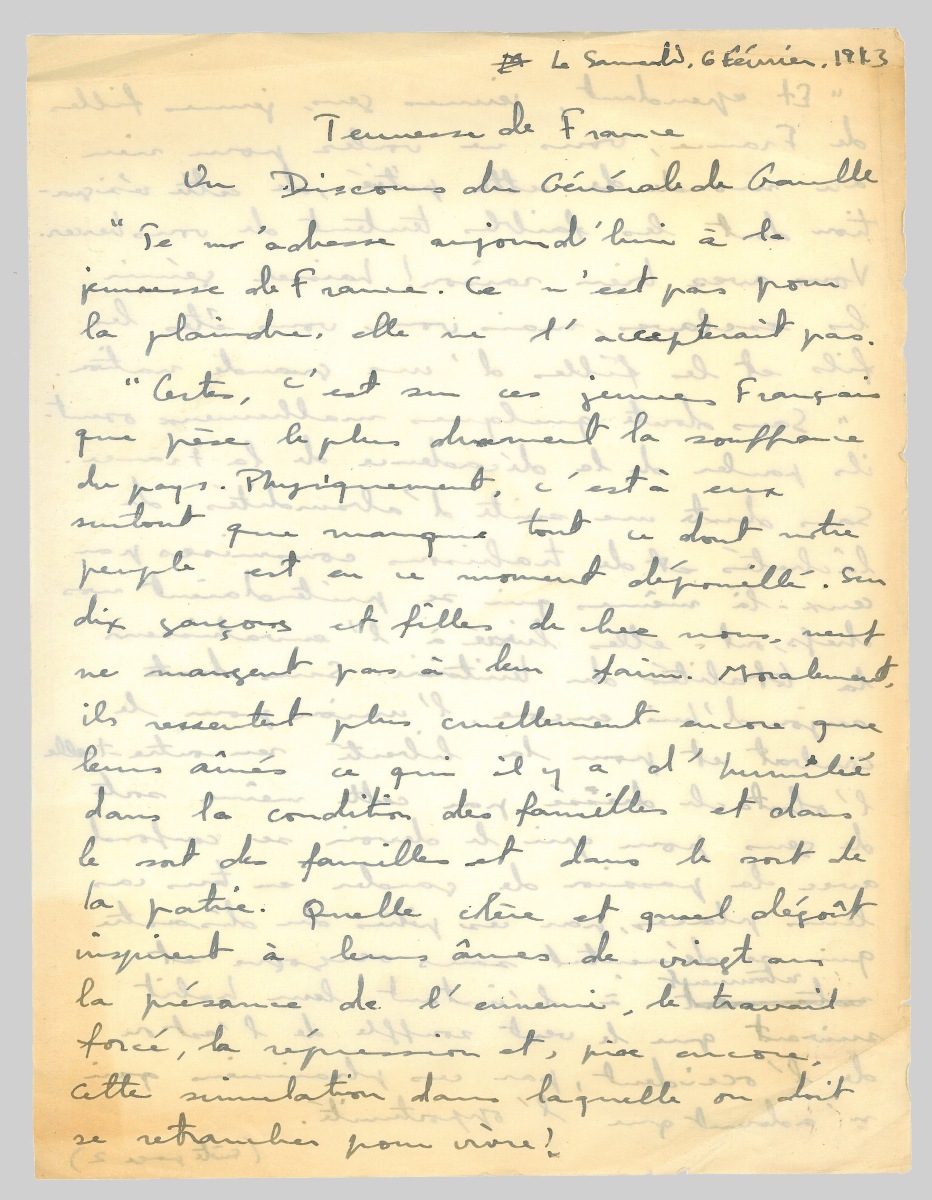 Le Samedi, 6 Février, 1943
Jeunesse de France
Un Discours du Générale de Gaulle
"Je m'adresse aujourd'hui à la
jeunesse de France. Ce n'est pas pour
la plaindre, elle ne l'accepterait pas.
"Certes, c'est sur ces jeunes Français
que pèse le plus durement la souffrance
du pays. Physiquement, c'est à eux
surtout que manque tout ce dont notre
peuple est en ce moment dépouillé. Sur
dix garçons et filles de chez nous, neuf
ne mangent pas à leur faim. Moralement,
ils ressentent plus cruellement encore que
leurs aînés ce qui il y a d'humilié
dans la condition des familles et dans
le sort des familles et dans le sort de
la patrie. Quelle colère et quel dégoût
inspirent à leurs âmes de vingt ans
la présance de l'ennemi, le travail
forcé, la répression et, pire encore,
cette simulation dans laquelle on doit
se retrancher pour vivre!